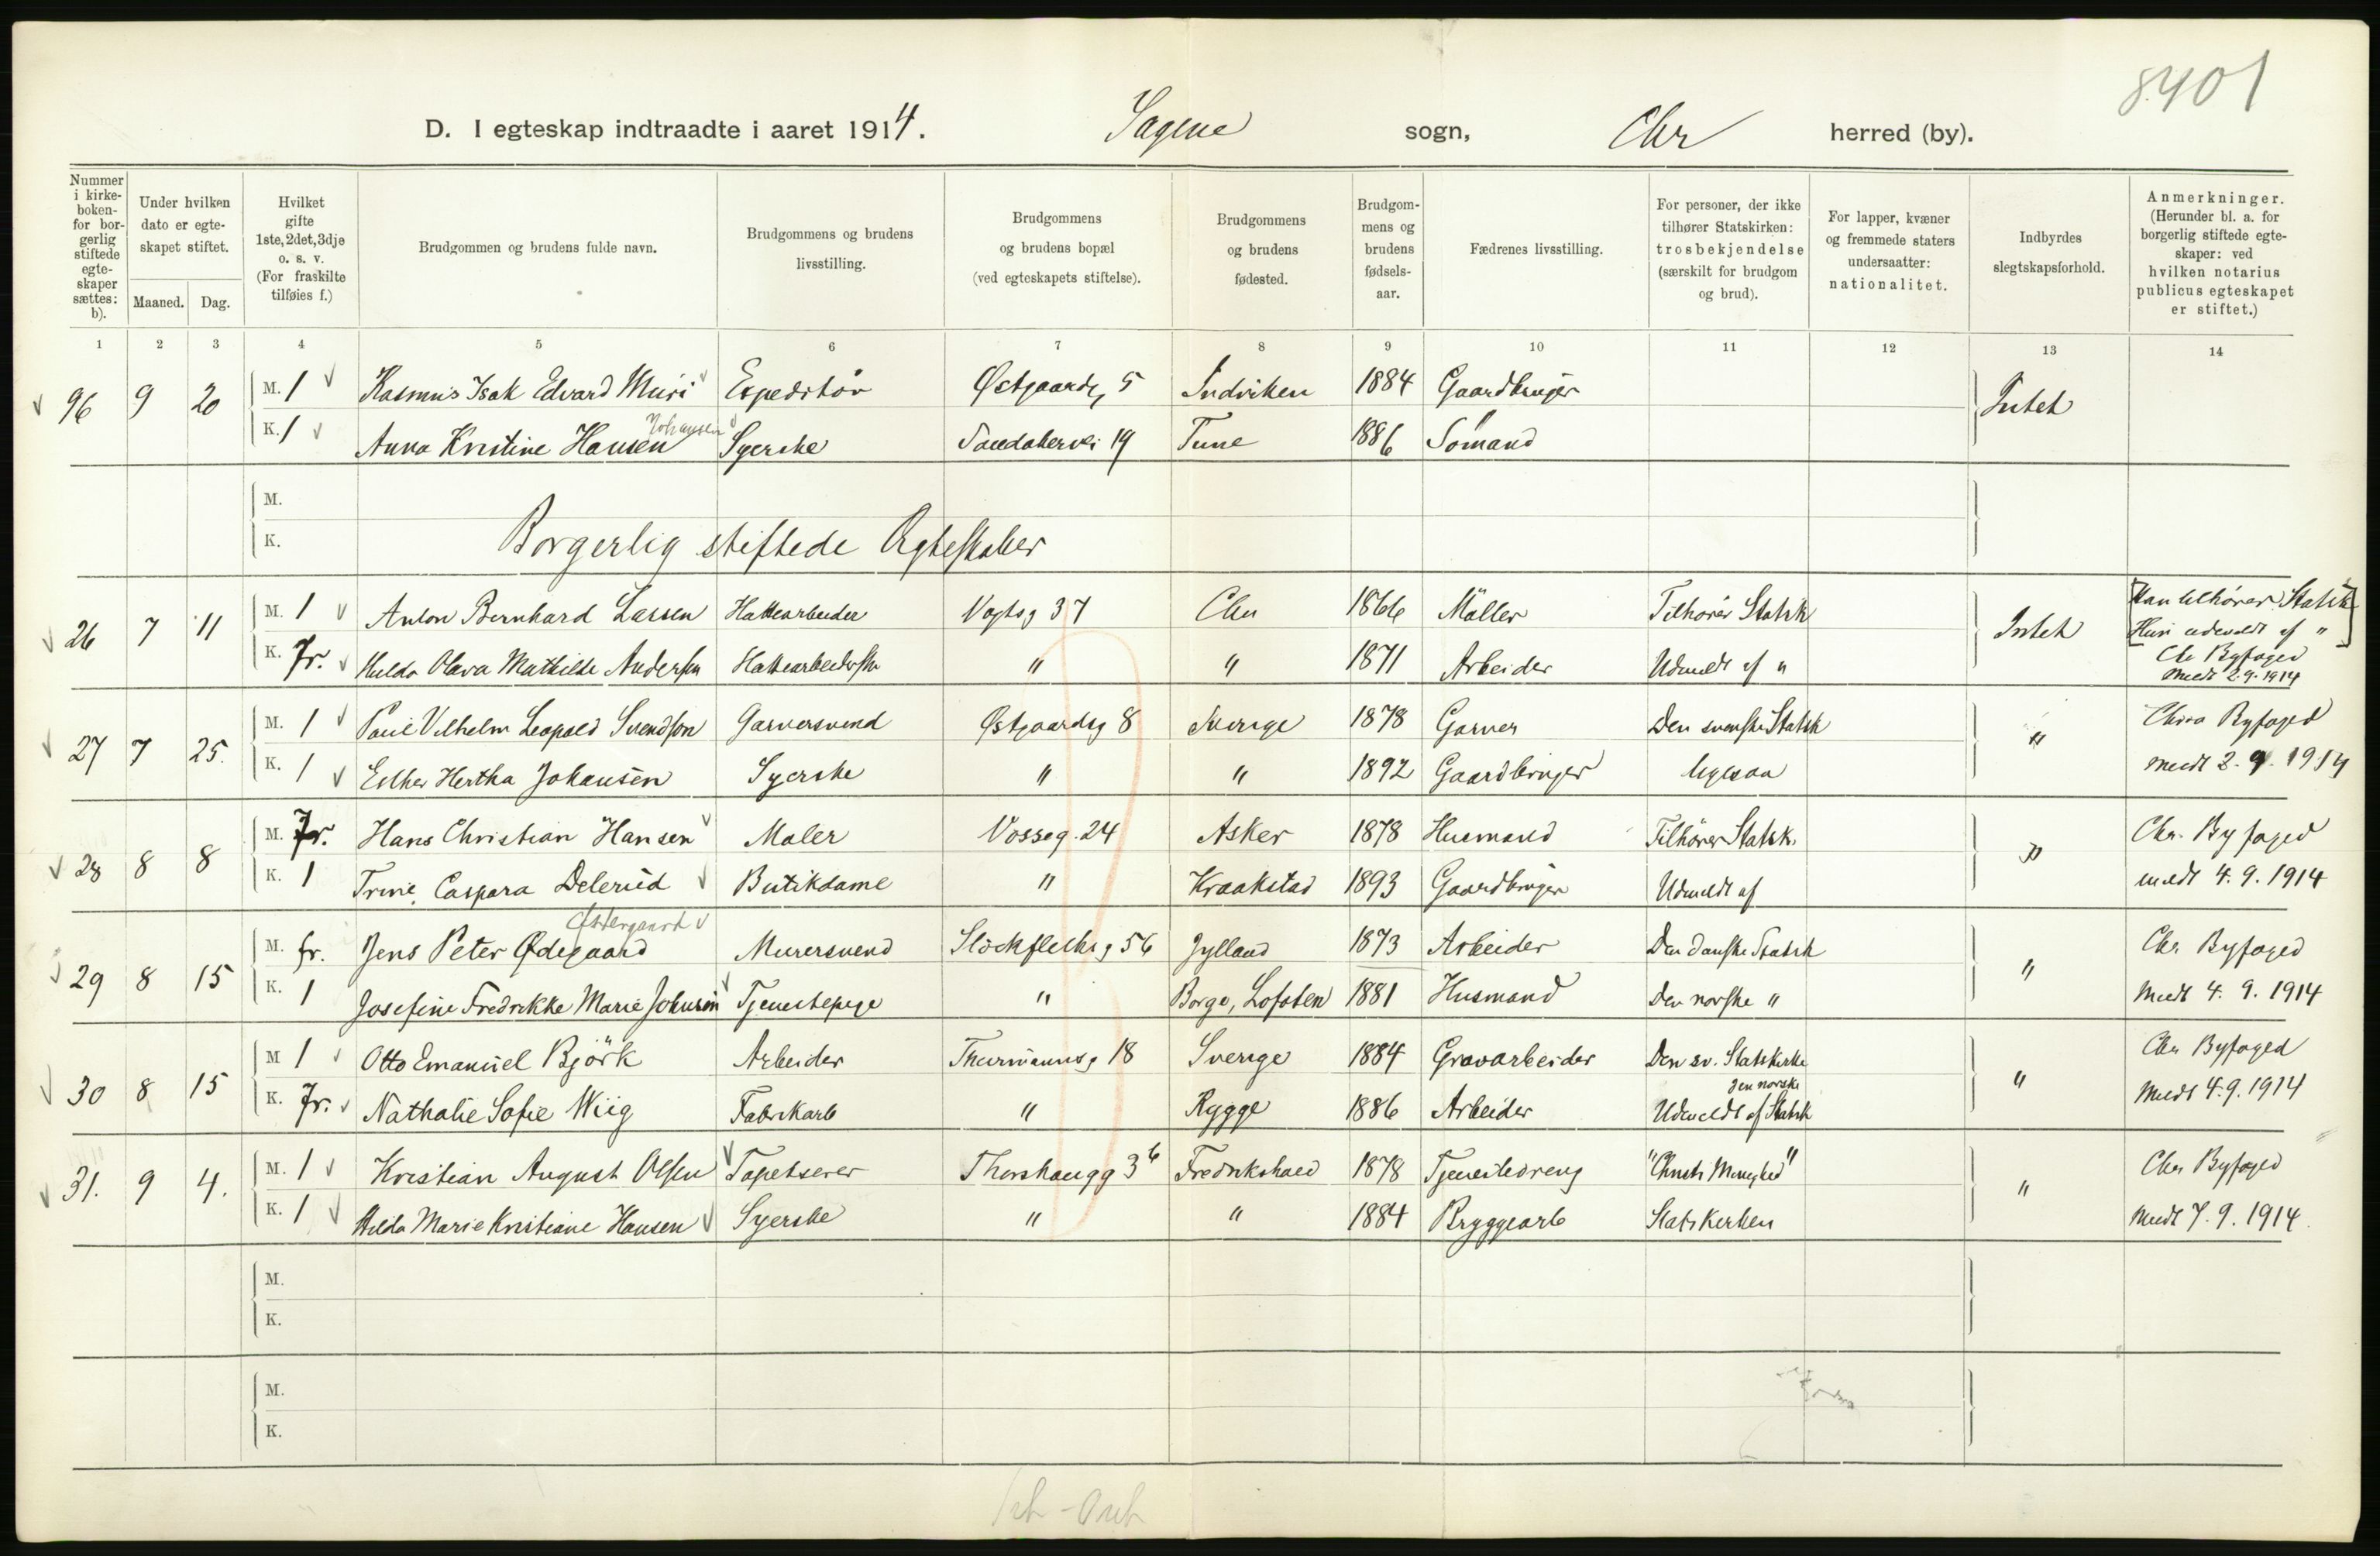 8401
D. I egteskap indtraadte i aaret 1914. Sagene sogn, Chr herred (by).
Nummer i kirkeboken- for borgerlig stiftede egteskaper sættes: b).
Under hvilken dato er egteskapet stiftet.
Maaned. Dag.
Hvilket gifte 1ste, 2det, 3dje o. s. v. (For fraskilte tilføies f.)
Brudgommen og brudens fulde navn.
Brudgommens og brudens livsstilling.
Brudgommens og brudens bopæl (ved egteskapets stiftelse).
Brudgommens og brudens fødested.
Brudgommens og brudens fødselsaar.
Fædrenes livsstilling.
For personer, der ikke tilhører Statskirken: trosbekjendelse (særskilt for brudgom og brud).
For lapper, kvæner og fremmede staters undersaatter: nationalitet.
Indbyrdes slegtskapsforhold.
Anmerkninger. (Herunder bl. a. for borgerlig stiftede egteskaper: ved hvilken notarius publicus egteskapet er stiftet.)
1 2 3 4 5 6 7 8 9 10 11 12 13 14
96 9 20 M. 1 Rasmus Isak Edvard Muri Expeditør Østgaardg 5 Indviken 1884 Gaardbruger Intet
Johansen
K. 1 Anna Kristine Hansen Syerske Sandakervei 19 Tune 1886 Sømand
M.
K. Borgerlig stiftede Ægteskaber
26 7 11 M. 1 Anton Bernhard Larsen Hattearbeider Vogtsg 37 Chr 1866 Møller Tilhører Statsk Intet Han tilhører Statsk
Hun udmeldt af "
K. Fr. Hulda Olava Mathilde Andersen Hattearbeiderske " " 1871 Arbeider Udmeldt af " Chr Byfoged
Meldt 2.9.1914
27 7 25. M. 1 Paul Vilhelm Leopold Svendson Garversvend Østgaardsg 8 Sverige 1878 Garver Den svenske Statsk " Chra Byfoged
K. 1 Esther Hertha Johansen Syerske " " 1892 Gaardbruger ligesaa meldt 2.9.1914
28 8 8 M. Fr. Hans Christian Hansen Maler Vossag. 24 Asker 1878 Husmand Tilhører Statsk. " Chr. Byfoged
K. 1 Trine Caspara Delerud Butikdame " Kraakstad 1893 Gaardbruger Udmeldt af meldt 4.9.1914
Østergaard
29 8 15 M. fr. Jens Peter Ødegaard Murersvend Stockflethsg 56 Jylland 1873 Arbeider Den danske Statsk " Chr. Byfoged
K. 1 Josefine Fredrikke Marie Johnsen Tjenestepige " Borge, Lofoten 1881 Husmand Den norske " Meldt 4.9.1914
30 8 15 M 1 Otto Emanuel Björk Arbeider Thurmannsg 18 Sverige 1884 Gravarbeider Den sv. Statskirke " Chr Byfoged
den norske
K. Fr. Nathalie Sofie Wiig Fabrikarb " Rygge 1886 Arbeider Udmeldt af Statsk Meldt 4.9.1914
31. 9 4. M. 1 Kristian August Olsen Tapetserer Thorshaugg 3 b Fredrikshald 1878 Tjenestedreng "Christi Menighed" " Chr Byfoged
K. 1 Hilda Marie Kristiane Hansen Syerske " " 1884 Bryggearb Statskirken Meldt 7.9.1914.
M.
K.
M.
K.